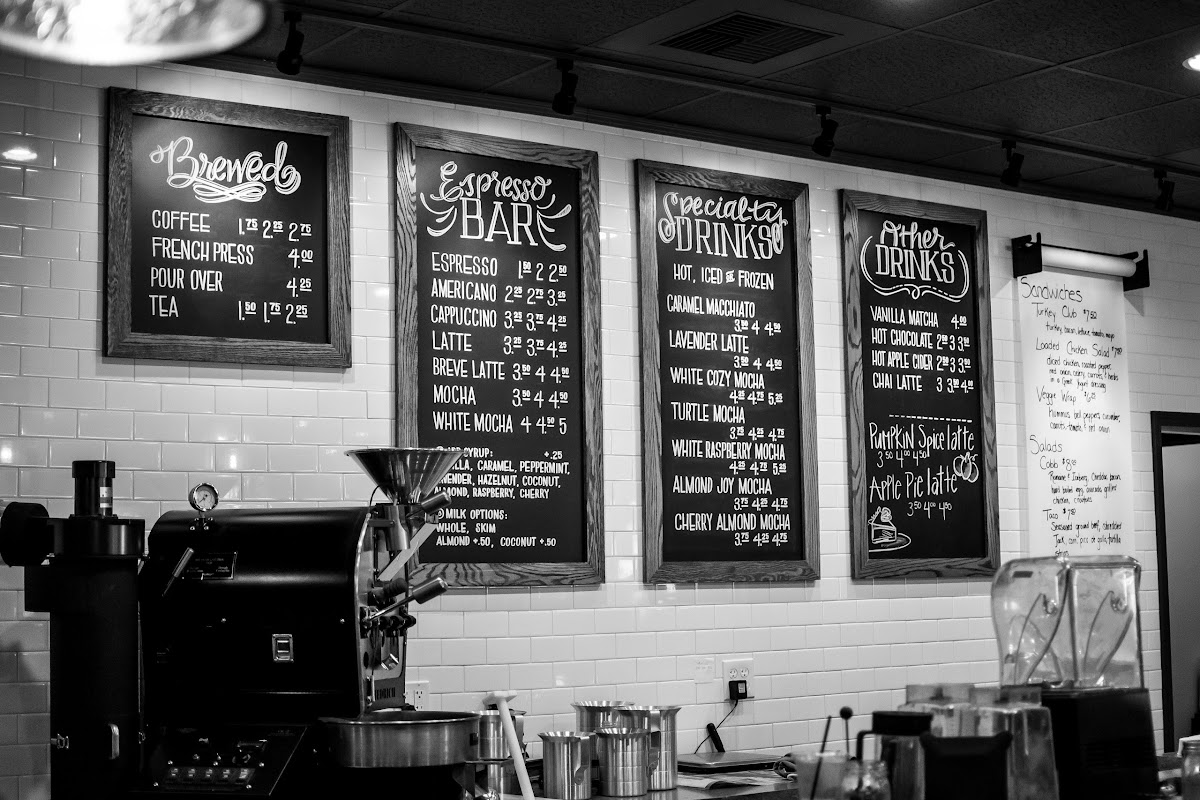 Brewed
COFFEE 1.75 2.25 2.75
FRENCH PRESS 4.00
POUR OVER 4.25
TEA 1.50 1.75 2.25
Espresso
BAR
ESPRESSO 1.50 2 2.50
AMERICANO 2.25 2.75 3.25
CAPPUCCINO 3.25 3.75 4.25
LATTE 3.25 3.75 4.25
BREVE LATTE 3.50 4 4.50
MOCHA 3.50 4 4.50
WHITE MOCHA 4 4.50 5
SYRUP: +.25
CARAMEL, PEPPERMINT,
HAZELNUT, COCONUT,
RASPBERRY, CHERRY
MILK OPTIONS:
WHOLE, SKIM
ALMOND +.50, COCONUT +.50
Specialty
DRINKS
HOT, ICED OR FROZEN
CARAMEL MACCHIATO
3.50 4 4.50
LAVENDER LATTE
3.50 4 4.50
WHITE COZY MOCHA
4.25 4.75 5.25
TURTLE MOCHA
3.75 4.25 4.75
WHITE RASPBERRY MOCHA
4.25 4.75 5.25
ALMOND JOY MOCHA
3.75 4.25 4.75
CHERRY ALMOND MOCHA
3.75 4.25 4.75
Other
DRINKS
VANILLA MATCHA 4.00
HOT CHOCOLATE 2.50 3 3.50
HOT APPLE CIDER 2.50 3 3.50
CHAI LATTE 3 3.50 4.00
Pumpkin Spice latte
3.50 4.00 4.50
Apple Pie latte
3.50 4.00 4.50
Sandwiches
Turkey Club
turkey, bacon, lettuce, tomato, mayo
Loaded Chicken Salad
diced chicken, roasted pepper,
red onion, celery, carrots, & herbs
in a Greek Yogurt dressing
Veggie Wrap
Hummus, bell peppers, cucumber,
carrots, tomato, & red onion
Salads
Cobb
Romaine & Iceberg, Cheddar, bacon,
hard boiled egg, avocado, grilled
chicken, croutons
Taco
Seasoned ground beef,
Jack, corn, pico de gallo, tortilla
strips